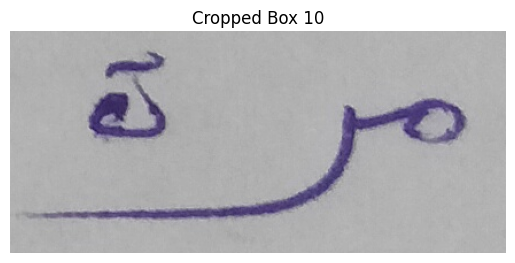 Cropped Box 10
مرة